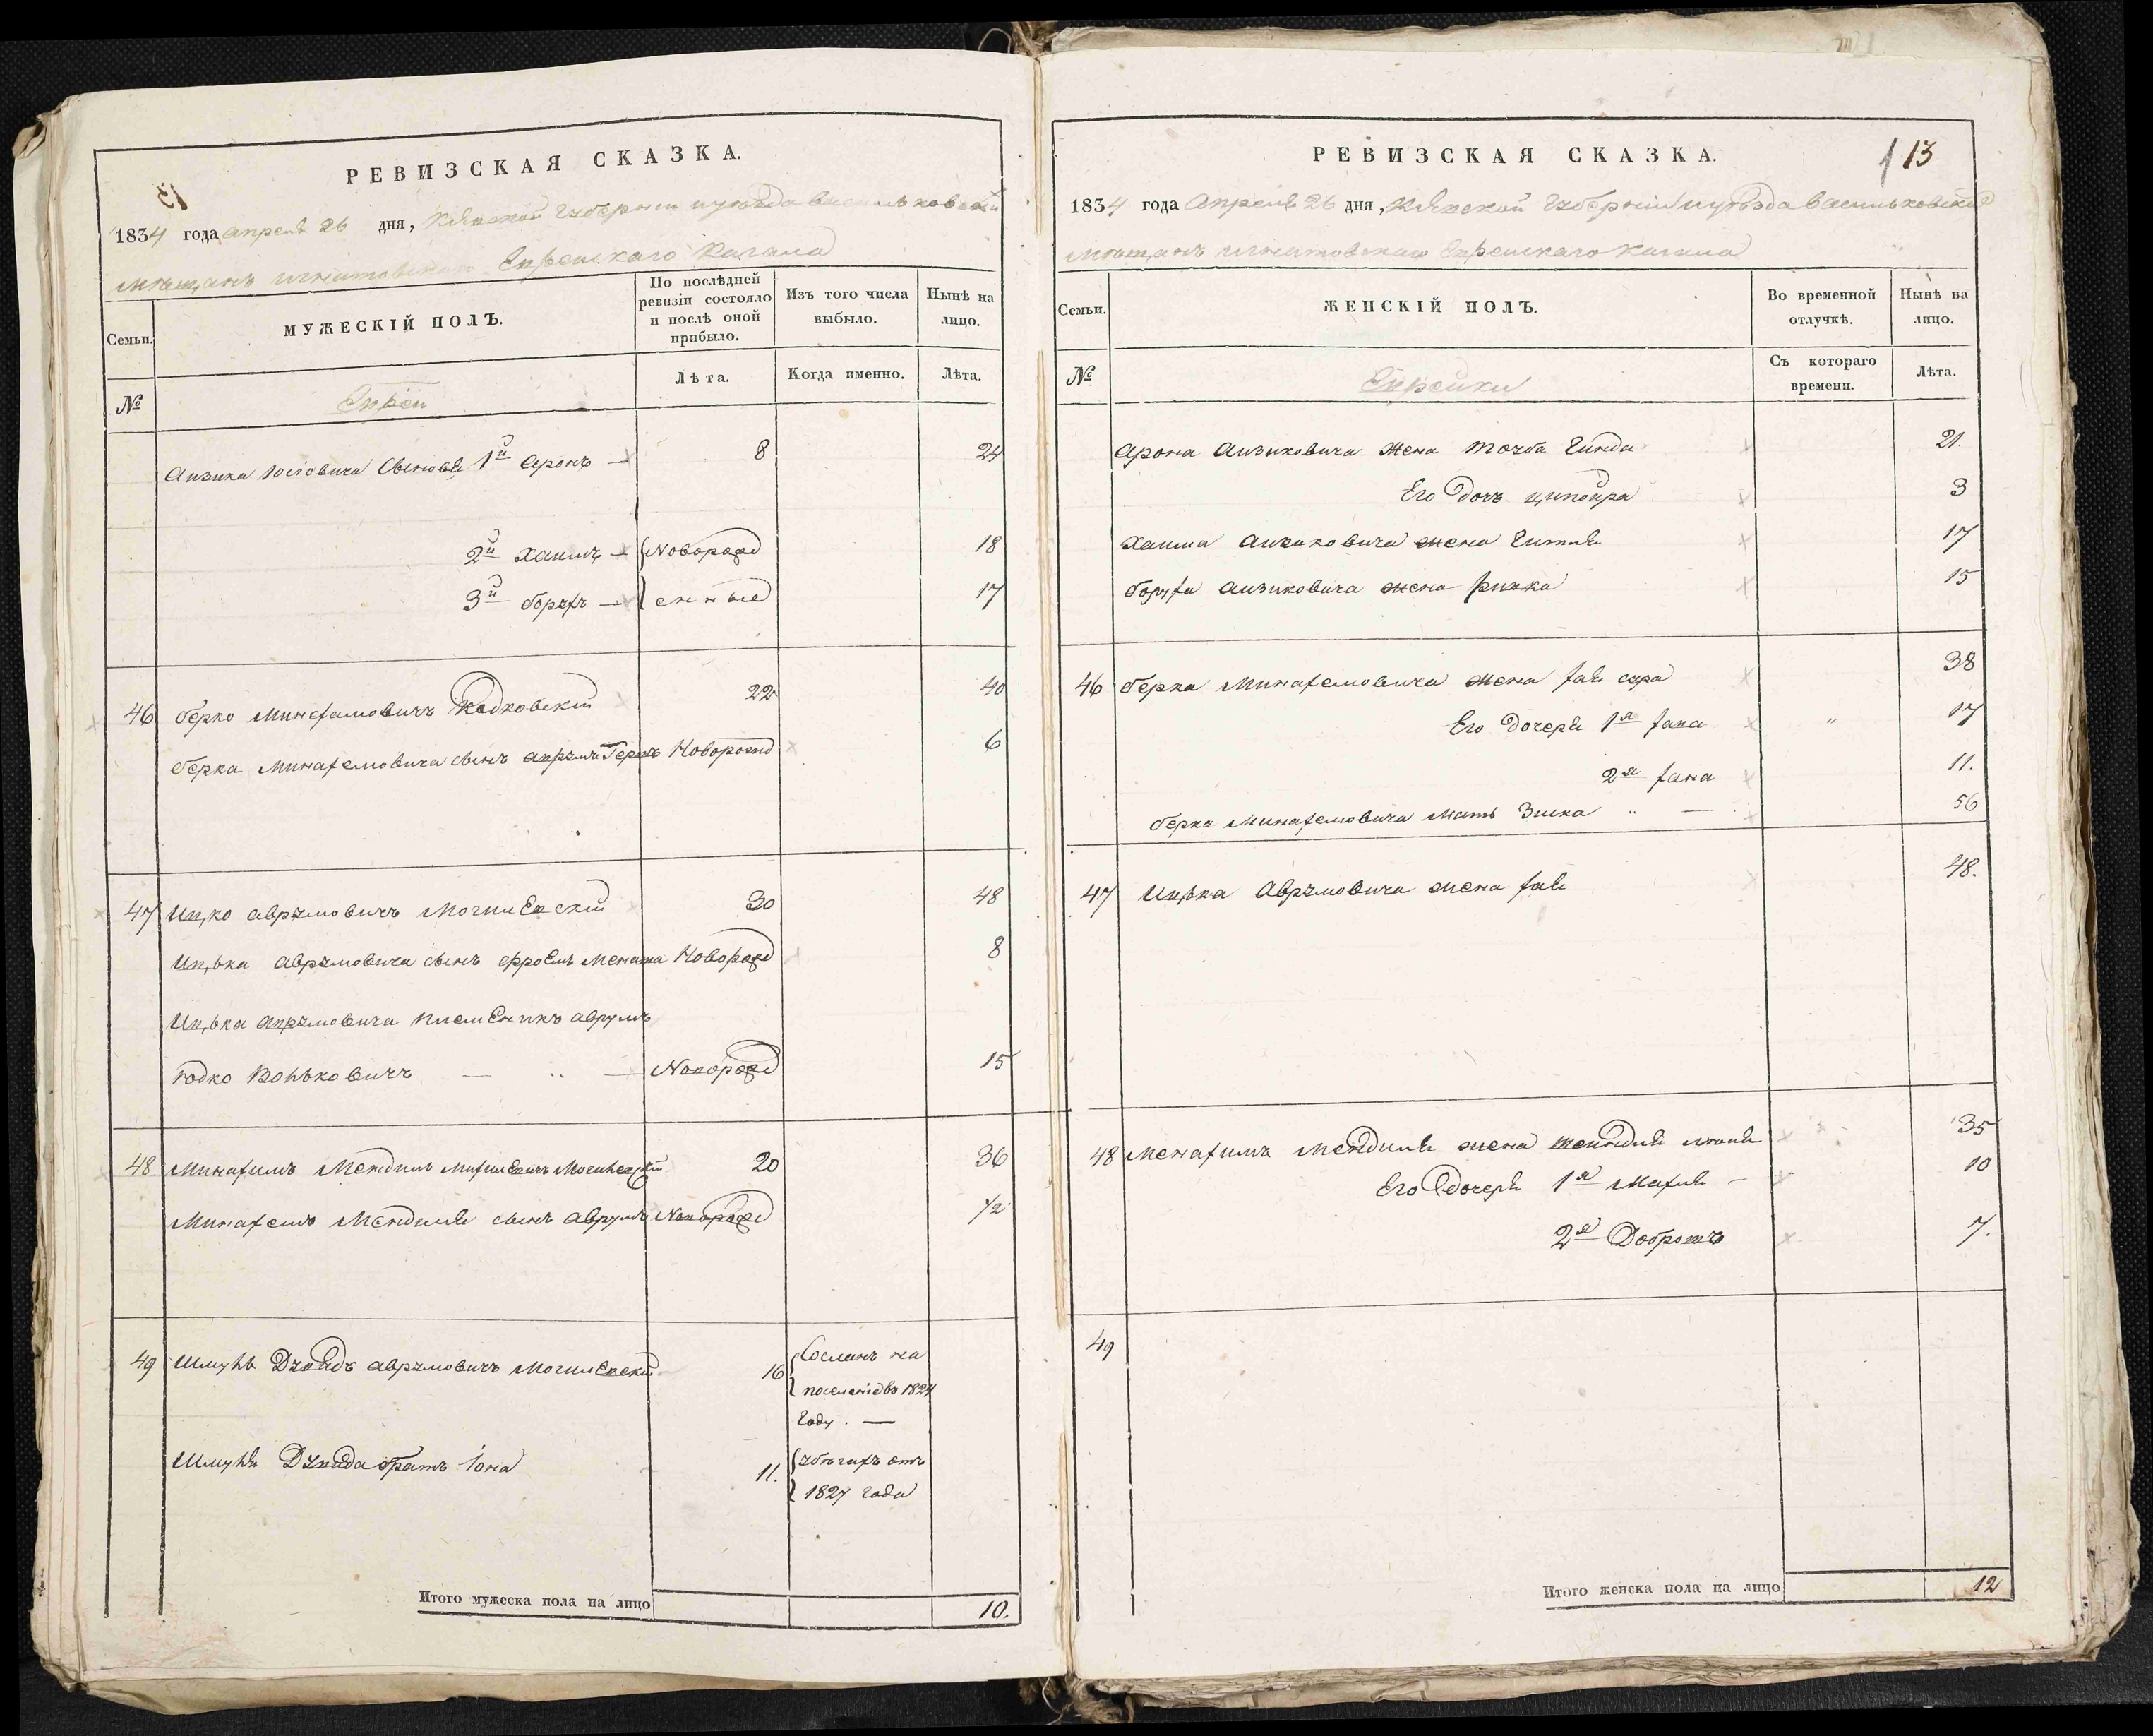 РЕВИЗСКАЯ СКАЗКА.
13
1834 года апреля 26 дня, Кіевской Губерніи и уѣзда Васильковской
мѣщанъ игнатовскаго Еврейскаго Кагала
Семьи.
МУЖЕСКІЙ ПОЛЪ.
По послѣдней ревизіи состояло и послѣ оной прибыло.
Изъ того числа выбыло.
Нынѣ на лицо.
№
Евреи
Лѣта.
Когда именно.
Лѣта.
Аизика Юсіовича Сыновья 1й Аронъ — 8 24
2й Хаимъ — Новорожд 18
3й борухъ — енные 17
46 берко Минахамовичъ Кодковскій 22 40
берка Минахемовича сынъ аврумъ Гершъ Новорожд 6
47 Ицко аврумовичъ Могилевскій 30 48
Ицька аврумовича сынъ фроемъ Менаша Новорожд 8
Ицька аврумовича племеникъ аврумъ
Юдко Вольковичъ — „ — Новорожд 15
48 Минахимъ Мендиль Могилевскій 20 36
Минахемъ Мендиля сынъ аврумъ Новорожд 1/2
49 Шмуль Дувидъ аврумовичъ Могилевскій 16 Сосланъ на
поселеніе въ 1824
году. —
Шмуля Дувида братъ Іона 11. въ бѣгахъ отъ
1827 года
Итого мужеска пола на лицо 10.
РЕВИЗСКАЯ СКАЗКА.
13
1834 года Апреля 26 дня, Кіевской Губерніи и уѣзда Васильковской
мѣщанъ игнатовскаго Еврейскаго Кагала
Семьи.
ЖЕНСКІЙ ПОЛЪ.
Во временной отлучкѣ.
Нынѣ на лицо.
№
Еврейки
Съ котораго времени.
Лѣта.
Арона Аизиковича жена Тоуба Гинда 21.
Его дочъ ципойра 3
Хаима Аизиковича жена Гитля 17
боруха Аизиковича жена ривка 15
46 берка Минахемовича жена хая сура 38
Его дочеря 1я хана „ 17
2я хана 11.
берка Минахемовича мать Зиска „ — 56
47 Ицька Аврумовича жена хая 48.
48 Менахимъ Мендиля жена шейндля 35
Его дочеря 1я Махля — 10
2я Доброшъ 7.
49
Итого женска пола на лицо 12